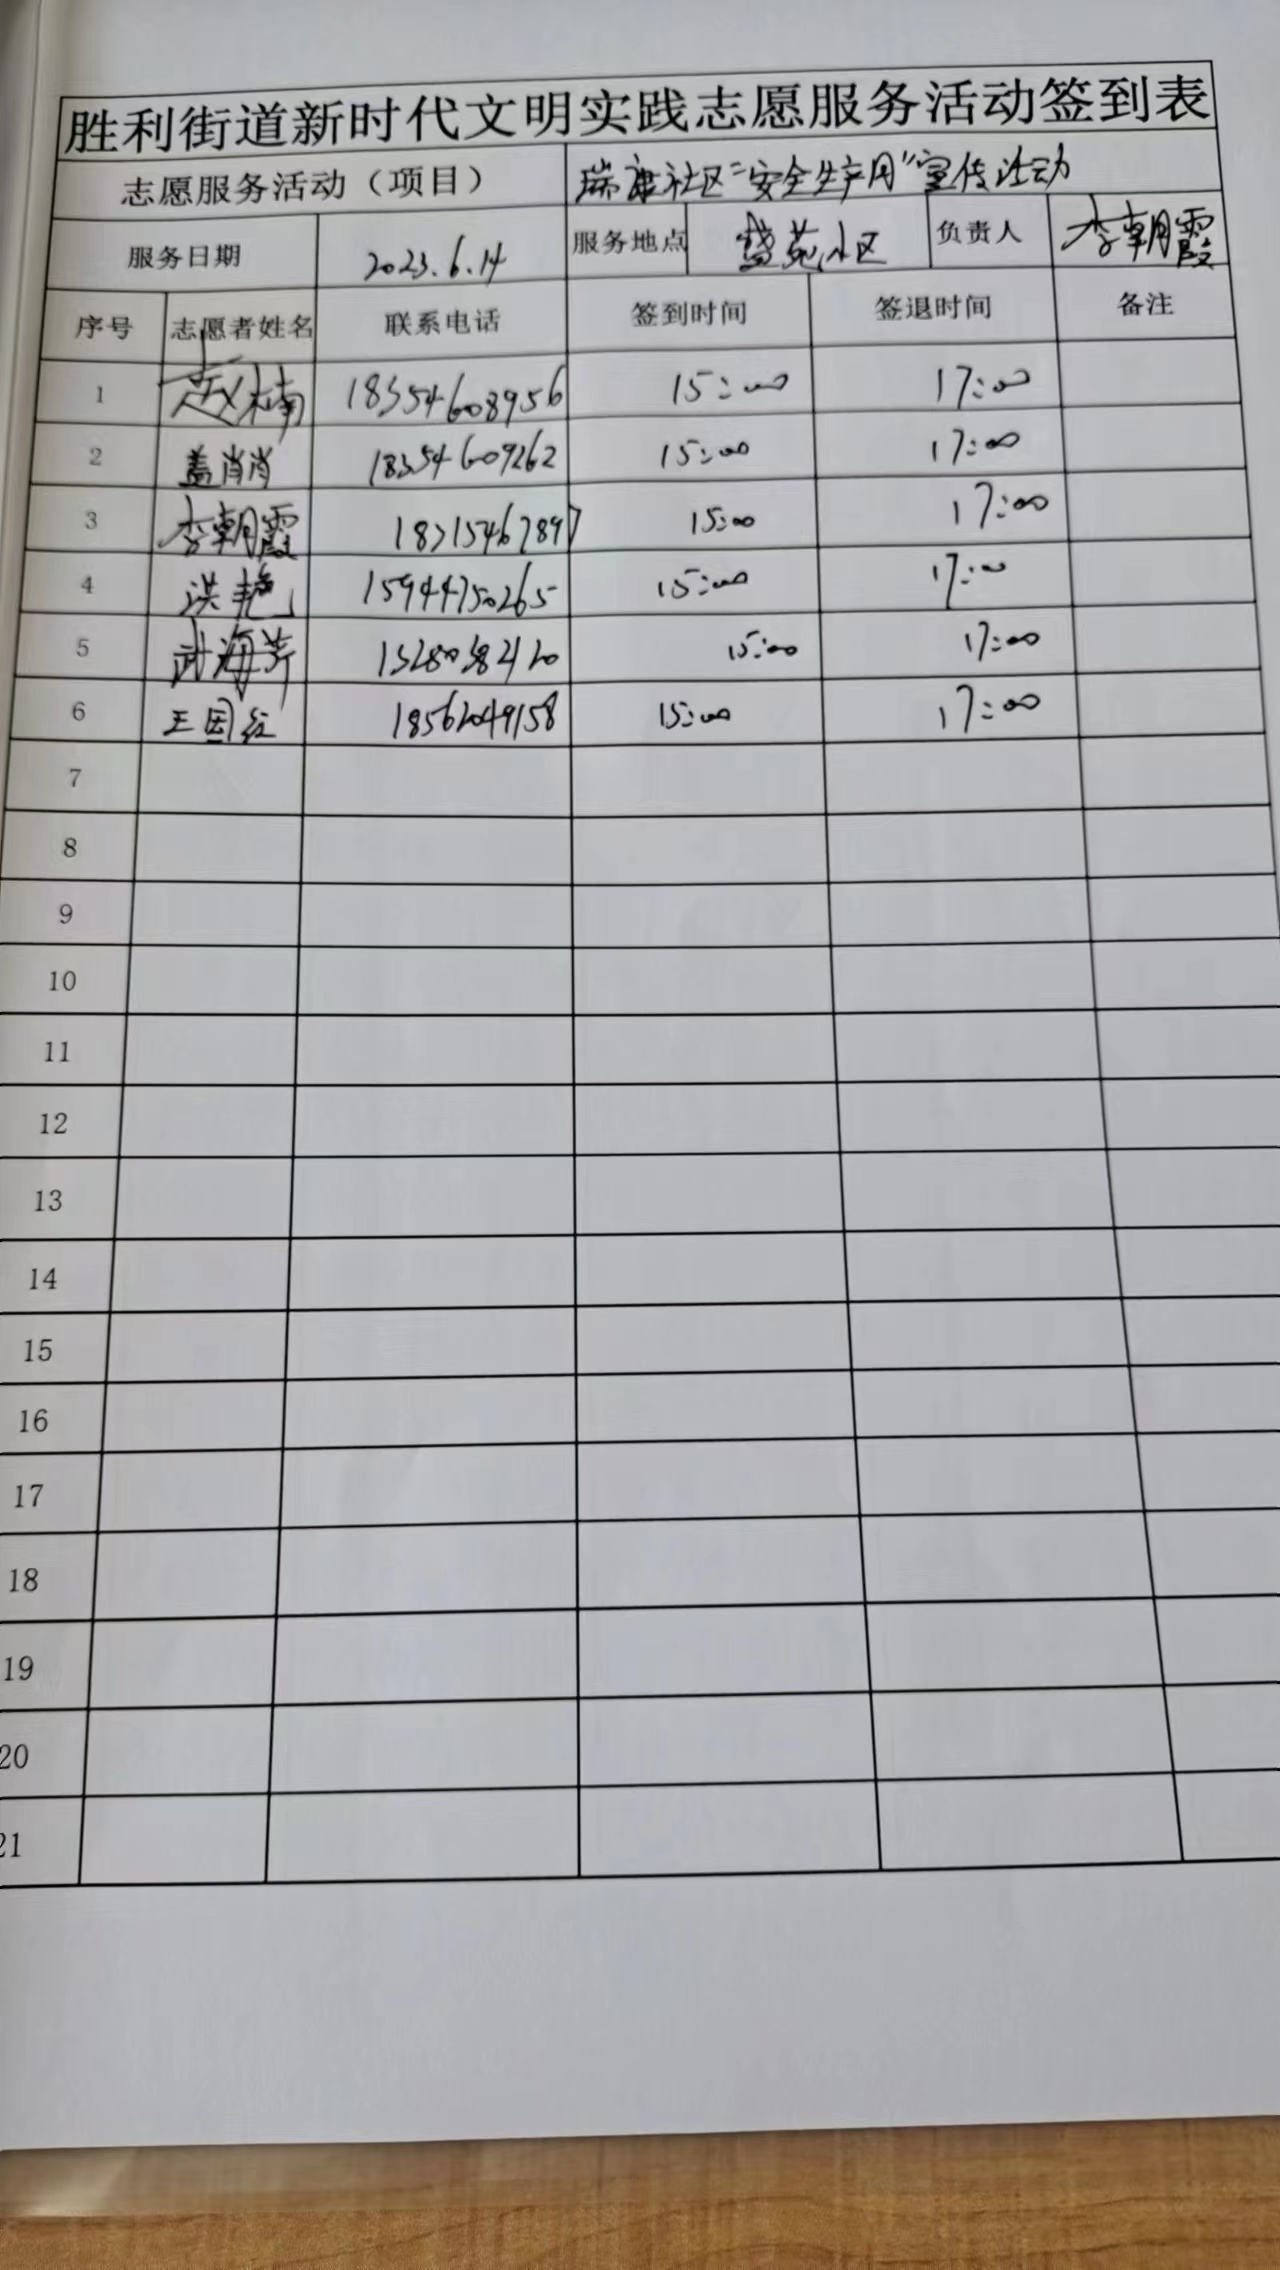 胜利街道新时代文明实践志愿服务活动签到表
志愿服务活动（项目） 瑞康社区“安全生产月”宣传活动
服务日期 2023.6.14 服务地点 苑小区 负责人 李朝霞
序号 志愿者姓名 联系电话 签到时间 签退时间 备注
1 赵楠 18354608956 15:00 17:00
2 盖肖肖 18354609262 15:00 17:00
3 李朝霞 15:00 17:00
4 洪艳 15944750265 15:00 17:00
5 武海芹 15:00 17:00
6 王国红 18562049158 15:00 17:00
7
8
9
10
11
12
13
14
15
16
17
18
19
20
21